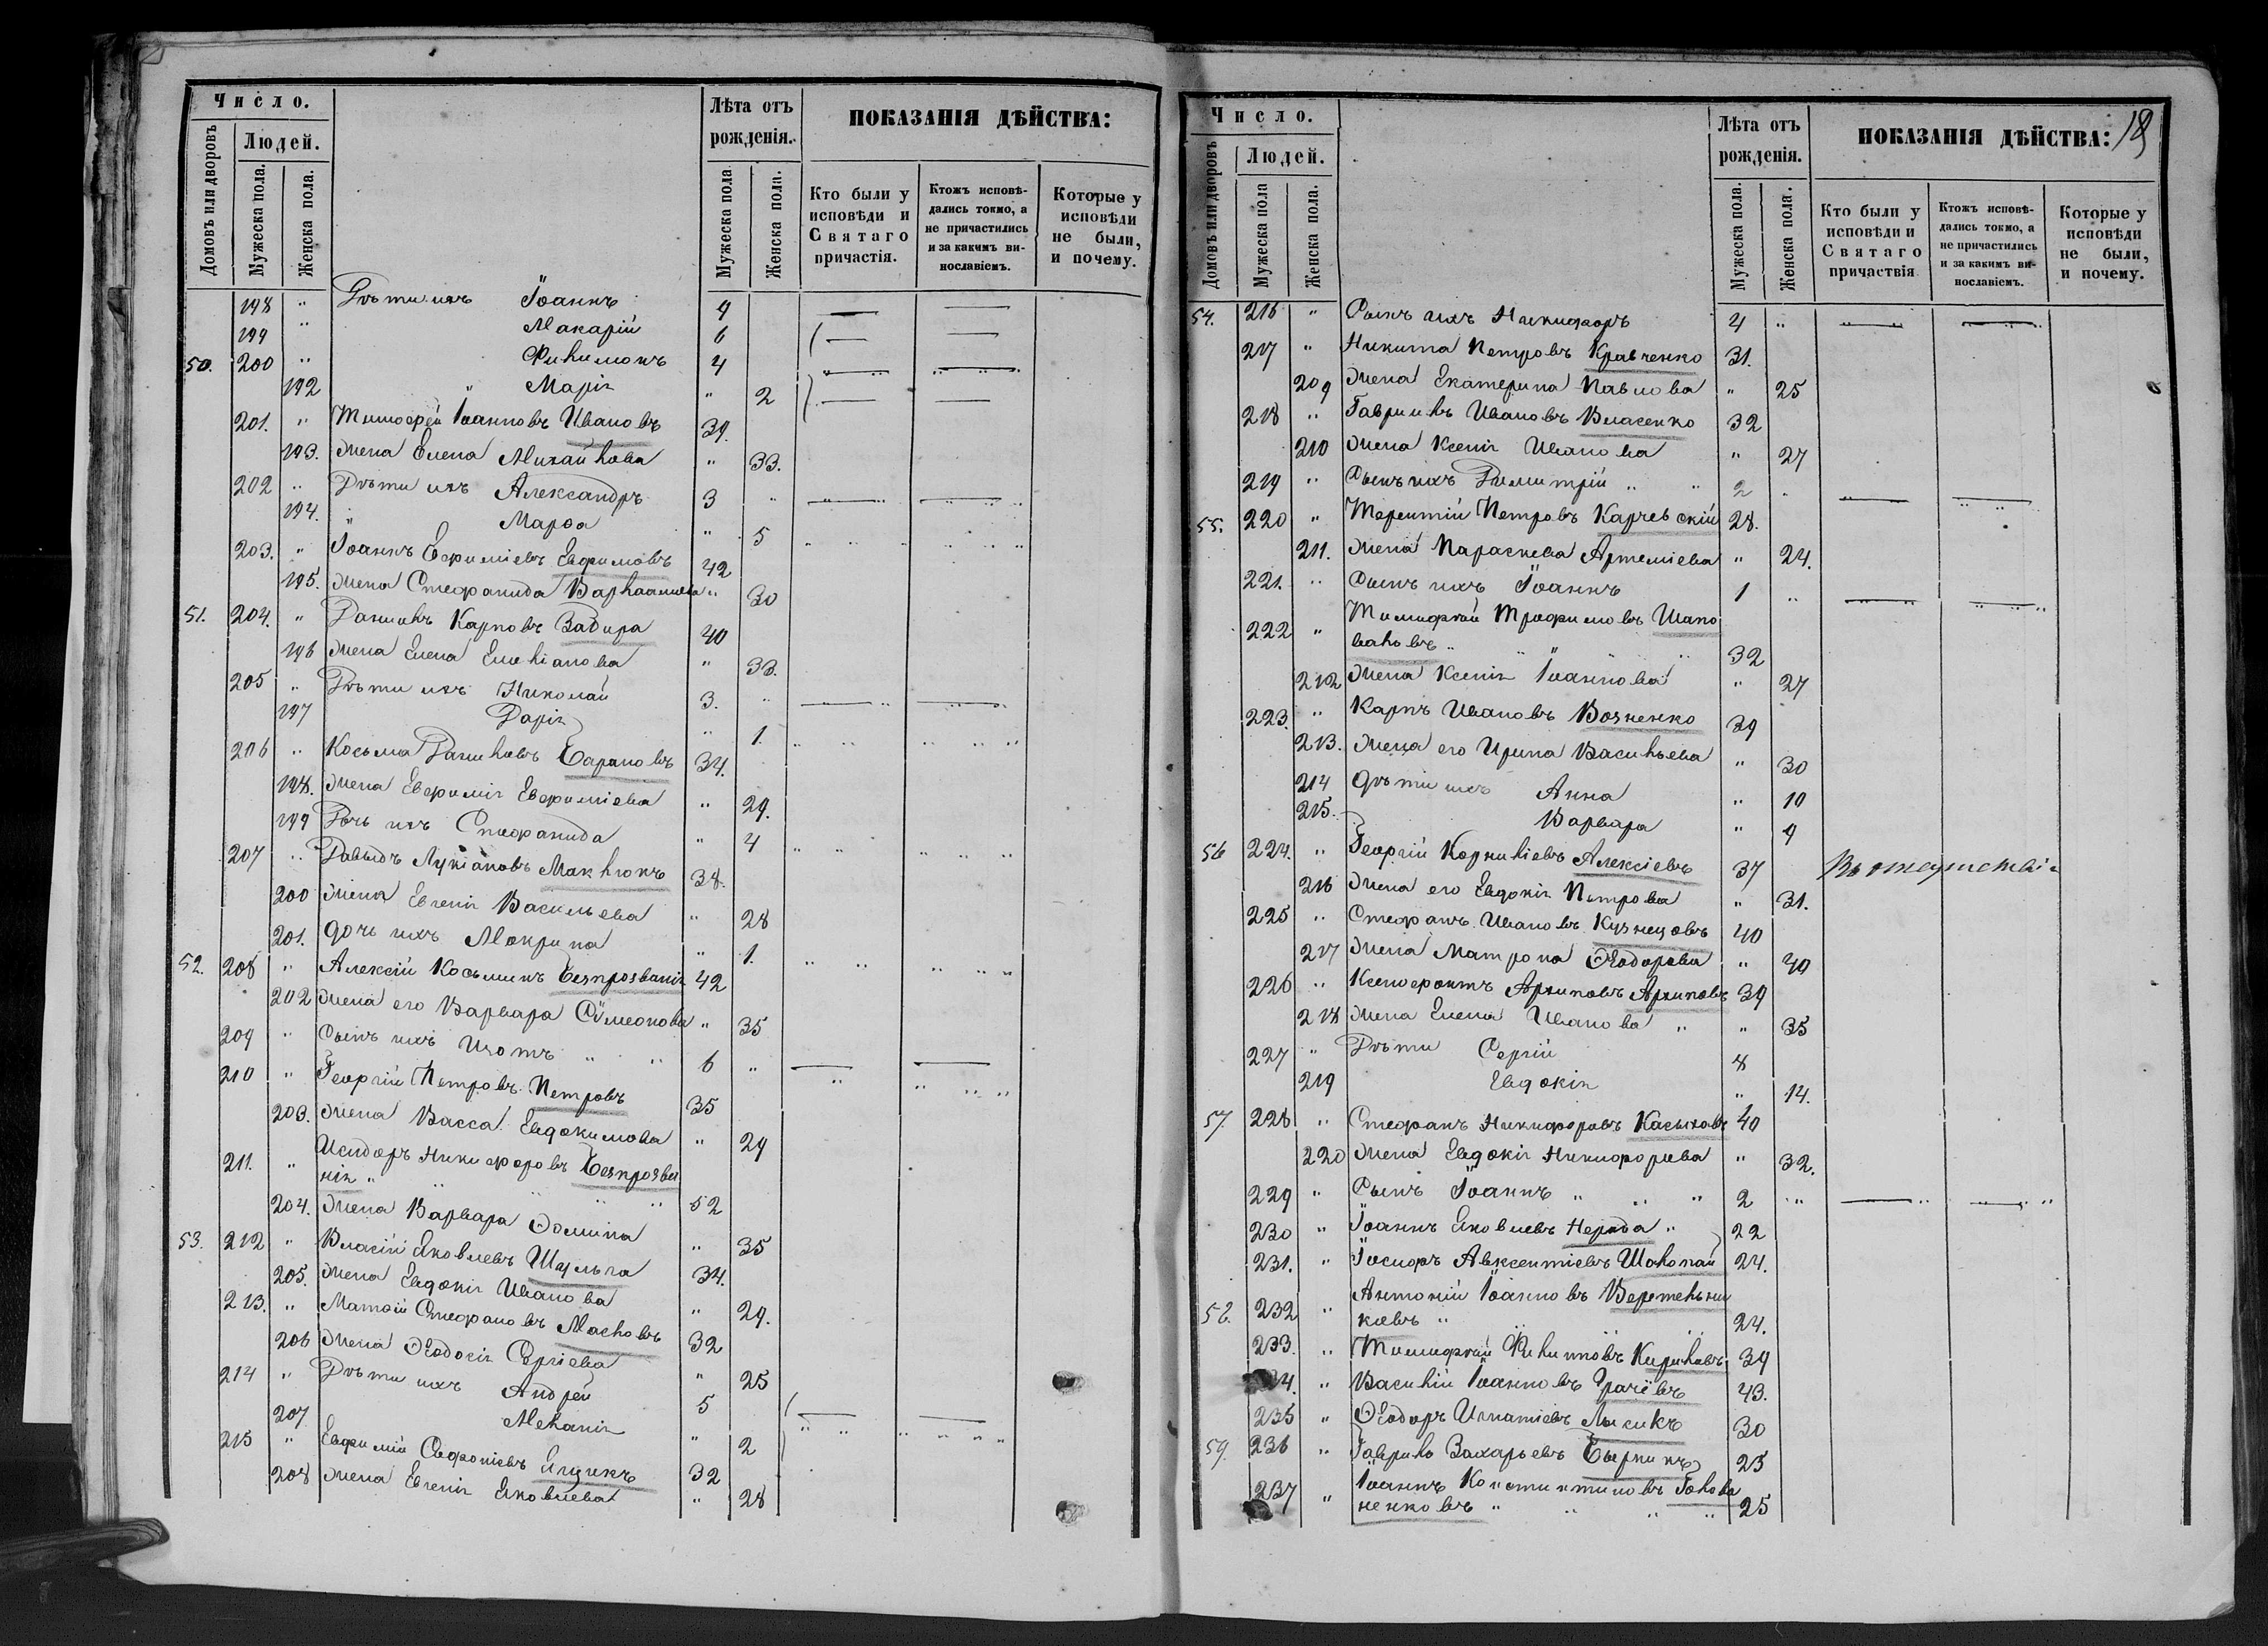 Число.
Людей.
Домовъ или дворовъ
Мужеска пола.
Женска пола.
Лѣта отъ рожденія.
Мужеска пола
Женска пола.
ПОКАЗАНІЯ ДѢЙСТВА:
Кто были у исповѣди и Святаго причастія.
Ктожъ исповѣдались токмо, а не причастились и за какимъ винославіемъ.
Которые у исповѣди не были, и почему.
198 " Дѣти ихъ Іоаннъ 9
199 " Макарій 6
50. 200 " Филимонъ 4
192 " Марія " 2
201. " Тимофей Іоанновъ Ивановъ 39.
193. Жена Елена Михайлова " 33.
202 " Дѣти ихъ Александръ 3 "
194. " Марѳа " 5
203. " Іоаннъ Ефиміевъ Евфимовъ 42
195. Жена Стефанида Варлаамова " 30
51. 204. " Даниилъ Карповъ Задира 40
196 Жена Елена Емеліанова " 33.
205 " Дѣти ихъ Николай 3. "
197 Дарія " 1.
206 " Косьма Даниловъ Барановъ 34.
198. Жена Евфимія Евфиміева " 29.
199 Дочь ихъ Стефанида " 4
207 " Давыдъ Лукіановъ Маклюкъ 38.
200 Жена Евгенія Васильева " 28
201. Дочь ихъ Макрина " 1.
52. 208 " Алексій Косьминъ Безпрозванія 42
202 Жена его Варвара Сѵмеонова " 35
209 " Сынъ ихъ Изотъ " " 6 "
210 " Георгій Петровъ Петровъ 35
203. Жена Васса Евдокимова " 29
211. " Исидоръ Никифоровъ Безпрозва
нія " " " " " 52
204. Жена Варвара Ѳомина " 35
53. 212 " Власій Яковлевъ Шульга 34.
205. Жена Евдокія Иванова " 29.
213. " Матѳій Стефановъ Масловъ 32
206 Жена Ѳеодосія Сергіева " 25
214 " Дѣти ихъ Андрей 5
207 Меланія " 2
215 " Евфимій Софроніевъ Ящукъ 32
208 Жена Евгенія Яковлева " 28
Число.
Людей.
Домовъ или дворовъ
Мужеска пола
Женска пола.
Лѣта отъ рожденія.
Мужеска пола.
Женска пола.
ПОКАЗАНІЯ ДѢЙСТВА: 18
Кто были у исповѣди и Святаго причаствія
Ктожъ исповѣдались токмо, а не причастились и за какимъ винославіемъ.
Которые у исповѣди не были, и почему.
54. 216 " Сынъ ихъ Никифоръ 4 "
217 " Никита Петровъ Кравченко 31.
209 Жена Екатерина Павлова " 25
218 " Гавриилъ Ивановъ Власенко 32
210 Жена Ксенія Иванова " 27
219 " Сынъ ихъ Димитрій " " 2 "
55. 220 " Терентій Петровъ Карчевскій 28.
211. Жена Параскева Артеміева " 24.
221. " Сынъ ихъ Іоаннъ 1 "
Тимофей Трофимовъ Шапо
222 " валовъ " " " " 32
212 Жена Ксенія Іоаннова " 27
223. " Карпъ Ивановъ Возненко 39
213. Жена его Ирина Васильева " 30
214 Дѣти ихъ Анна " 10
215. Варвара " 9
56 224. " Георгій Корниліевъ Алексіевъ 37 Въ отсутствіи
216 Жена его Евдокія Петрова " 31.
225 " Стефанъ Ивановъ Кузнецовъ 40
217 Жена Матрона Ѳеодорова " 40
226 " Ксенофонтъ Архиповъ Архиповъ 39
218 Жена Елена Иванова " " 35
227 " Дѣти Сергій 8
219 Евдокія " 14.
57 228 " Стефанъ Никифоровъ Касьяновъ 40
220 Жена Евдокія Никифорова " 32.
229 " Сынъ Іоаннъ " " " 2 "
230 " Іоаннъ Яковлевъ Нерода " 22
231. " Іосифъ Авксентіевъ Шаколай 24.
Антоній Іоанновъ Веретельни
58. 232 " ковъ " " " 24.
233. " Тимофей Филипповъ Кириловъ 39
234. " Василій Іоанновъ Грачёвъ 43.
235 " Ѳеодоръ Игнатіевъ Лысикъ 30
59. 236 " Гаврилъ Захарьевъ Бырникъ 25
Іоаннъ Константиновъ Голова
237 " ненковъ " " " " 25